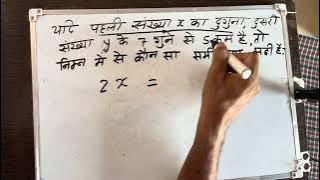 यदि पहली संख्या x का दुगुना, दुसरी
संख्या y के 7 गुने से 5 कम है, तो
निम्न मे से कौन सा सही है:
2x =